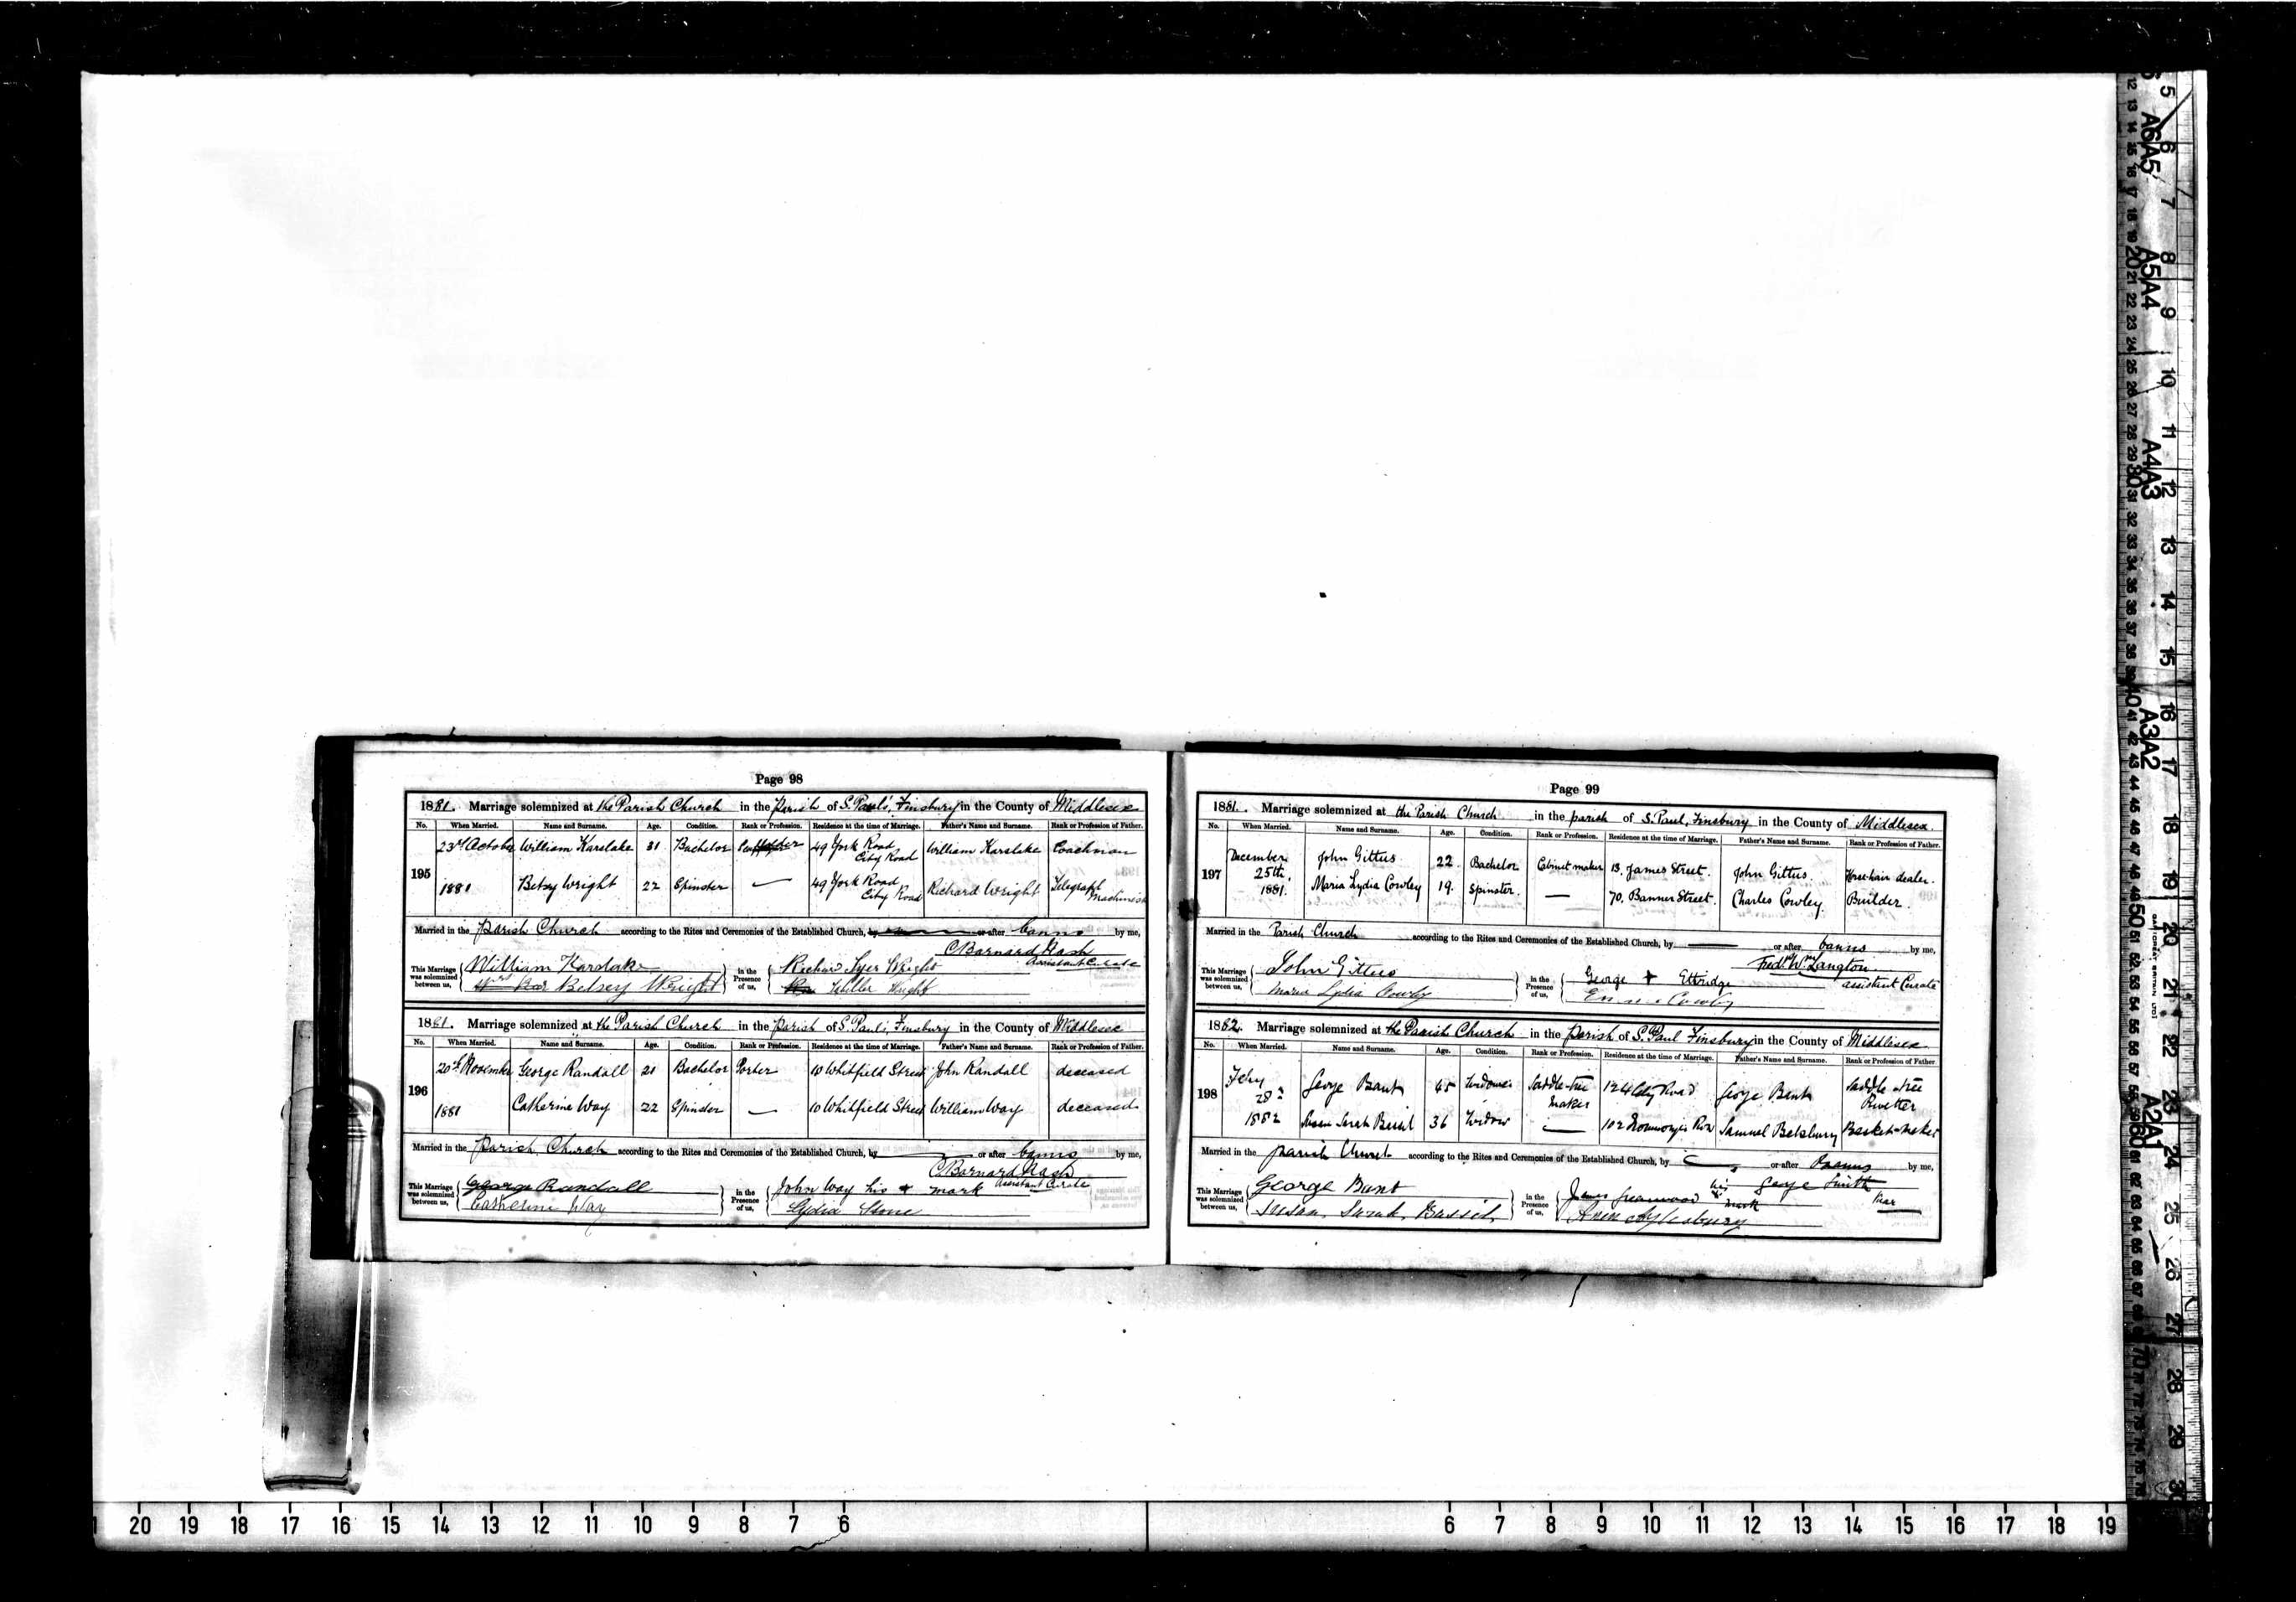 Page 98
1881. Marriage solemnized at the Parish Church in the Parish of S. Paul's, Finsbury in the County of Middlesex
No. When Married. Name and Surname. Age. Condition. Rank or Profession. Residence at the time of Marriage. Father's Name and Surname. Rank or Profession of Father.
195
23rd October William Karslake 31 Bachelor 49 York Road City Road William Karslake Coachman
1881 Betsy Wright 22 Spinster — 49 York Road City Road Richard Wright Telegraph Machinist
Married in the Parish Church according to the Rites and Ceremonies of the Established Church, by or after banns by me,
C Barnard Nash
Assistant Curate
This Marriage was solemnized between us, William Karslake
Betsey Wright
in the Presence of us, Richard Wright
Wright
1881. Marriage solemnized at the Parish Church in the Parish of S. Paul's, Finsbury in the County of Middlesex
No. When Married. Name and Surname. Age. Condition. Rank or Profession. Residence at the time of Marriage. Father's Name and Surname. Rank or Profession of Father.
196
20th November George Randall 21 Bachelor Porter 10 Whitfield Street John Randall deceased
1881 Catherine Way 22 Spinster — 10 Whitfield Street William Way deceased
Married in the Parish Church according to the Rites and Ceremonies of the Established Church, by or after banns by me,
C Barnard Nash
Assistant Curate
This Marriage was solemnized between us, George Randall
Catherine Way
in the Presence of us, John Way his + mark
Lydia Stone
Page 99
1881. Marriage solemnized at the Parish Church in the parish of S. Paul, Finsbury in the County of Middlesex.
No. When Married. Name and Surname. Age. Condition. Rank or Profession. Residence at the time of Marriage. Father's Name and Surname. Rank or Profession of Father.
197
December 25th, 1881. John Gittus 22. Bachelor Cabinet maker 13. James Street. John Gittus. Horse-hair dealer.
Maria Lydia Cowley 19. Spinster. — 70. Banner Street. Charles Cowley. Builder.
Married in the Parish Church according to the Rites and Ceremonies of the Established Church, by or after banns by me,
Fredk. Wm. Langton
assistant Curate
This Marriage was solemnized between us, John Gittus
Maria Lydia Cowley
in the Presence of us, George + Ettridge
Cowley
1882. Marriage solemnized at the Parish Church in the Parish of S. Paul Finsbury in the County of Middlesex
No. When Married. Name and Surname. Age. Condition. Rank or Profession. Residence at the time of Marriage. Father's Name and Surname. Rank or Profession of Father
198
Feby 28 1882 George Bant 45 Widower Saddle-tree Maker 124 City Road George Bant Saddle-tree Rivetter
Susan Sarah 36 Widow — 102 Samuel Basket-maker
Married in the Parish Church according to the Rites and Ceremonies of the Established Church, by or after Banns by me,
George Smith
Vicar
This Marriage was solemnized between us, George Bant
Susan Sarah Bassil
in the Presence of us, James Greenwood his x mark
Ann Aylesbury
20 19 18 17 16 15 14 13 12 11 10 9 8 7 6
6 7 8 9 10 11 12 13 14 15 16 17 18 19
A6A5 A5A4 A4A3 A3A2 A2A1
5 6 7 8 9 10 11 12 13 14 15 16 17 18 19 20 21 22 23 24 25 26 27 28 29 30